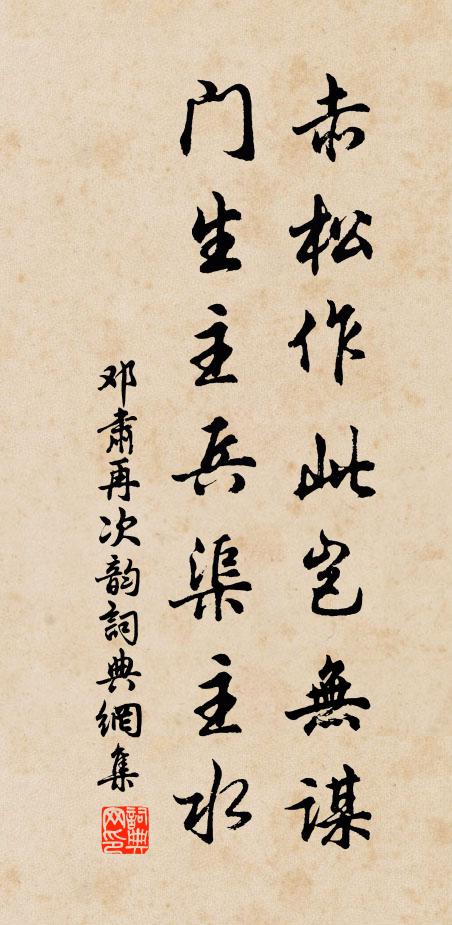 赤松作此岂無謀
門生主兵渠主水
邓肅再次韵詞典網集
詞典网印